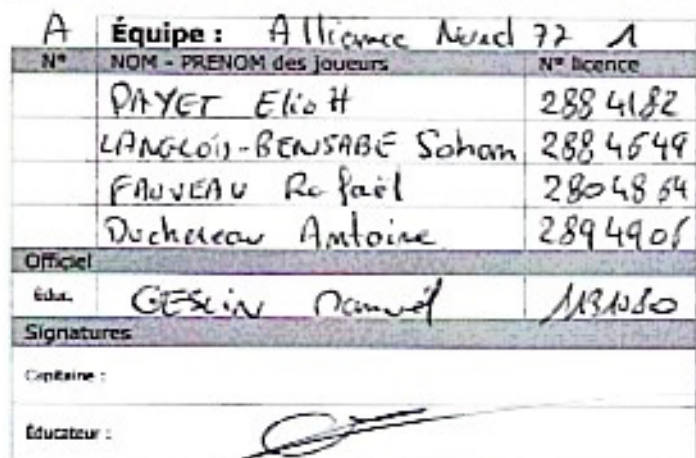 A Équipe : Alliance Nord 77 1
N° NOM - PRENOM des joueurs N° licence
PAYET Eliott 2884182
LANGLOIS-BENSABE Sohan 2884649
FAUVEAU Rafaël 2804864
Duchereau Antoine 2894906
Officiel
Éduc. GESLIN Manuel
Signatures
Capitaine :
Éducateur :